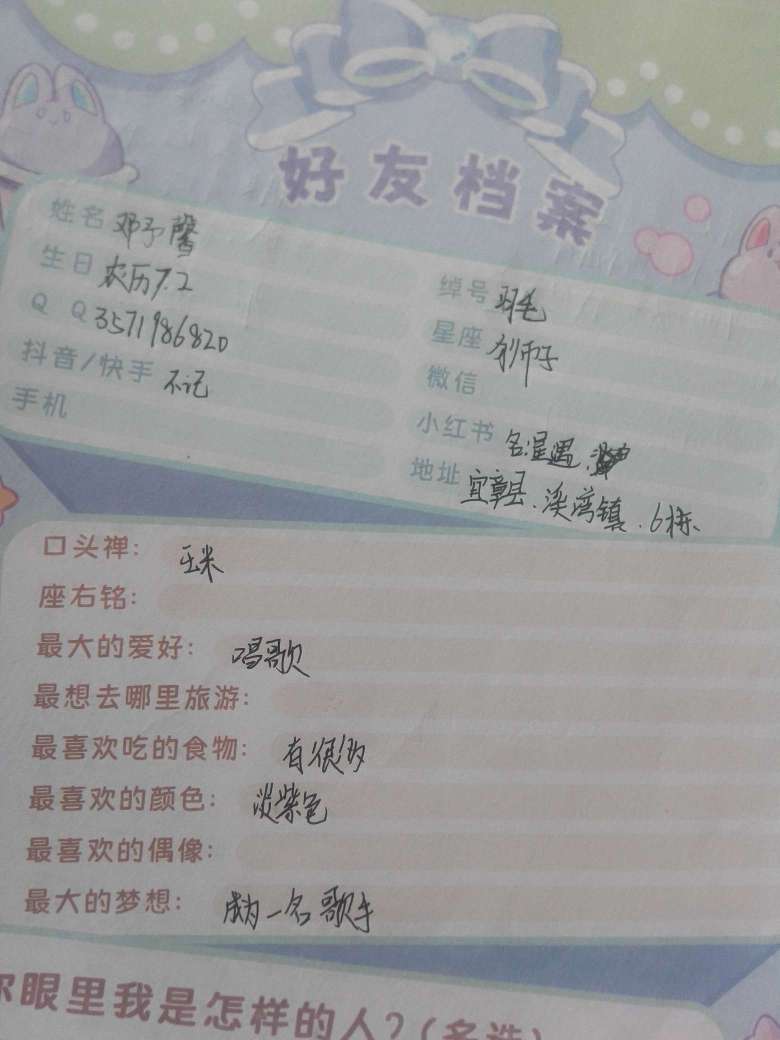 好友档案
姓名 邓予馨
生日 农历7.2
Q Q 3571986820
抖音/快手 不记
手机
绰号 羽毛
星座 狮子
微信
小红书 名:星遇
地址 宜章县.溪湾镇.6栋.
口头禅: 玉米
座右铭:
最大的爱好: 唱歌
最想去哪里旅游:
最喜欢吃的食物: 有很多
最喜欢的颜色: 淡紫色
最喜欢的偶像:
最大的梦想: 成为一名歌手
眼里我是怎样的人?(多选)